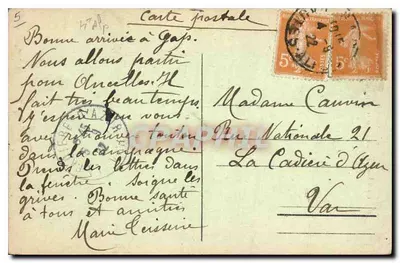 5
Carte postale
Bonne arrivée à Gap.
Nous allons partir
pour Ancelles. Il
fait très beau temps.
J'espère que vous
dans la campagne.
Prends les lettres dans
la fenêtre. Soigne les
grives. Bonne santé
à tous et amitiés
Marie Teisseire
Madame Cauvin
Rue Nationale 21
La Cadière d'Azur
Var